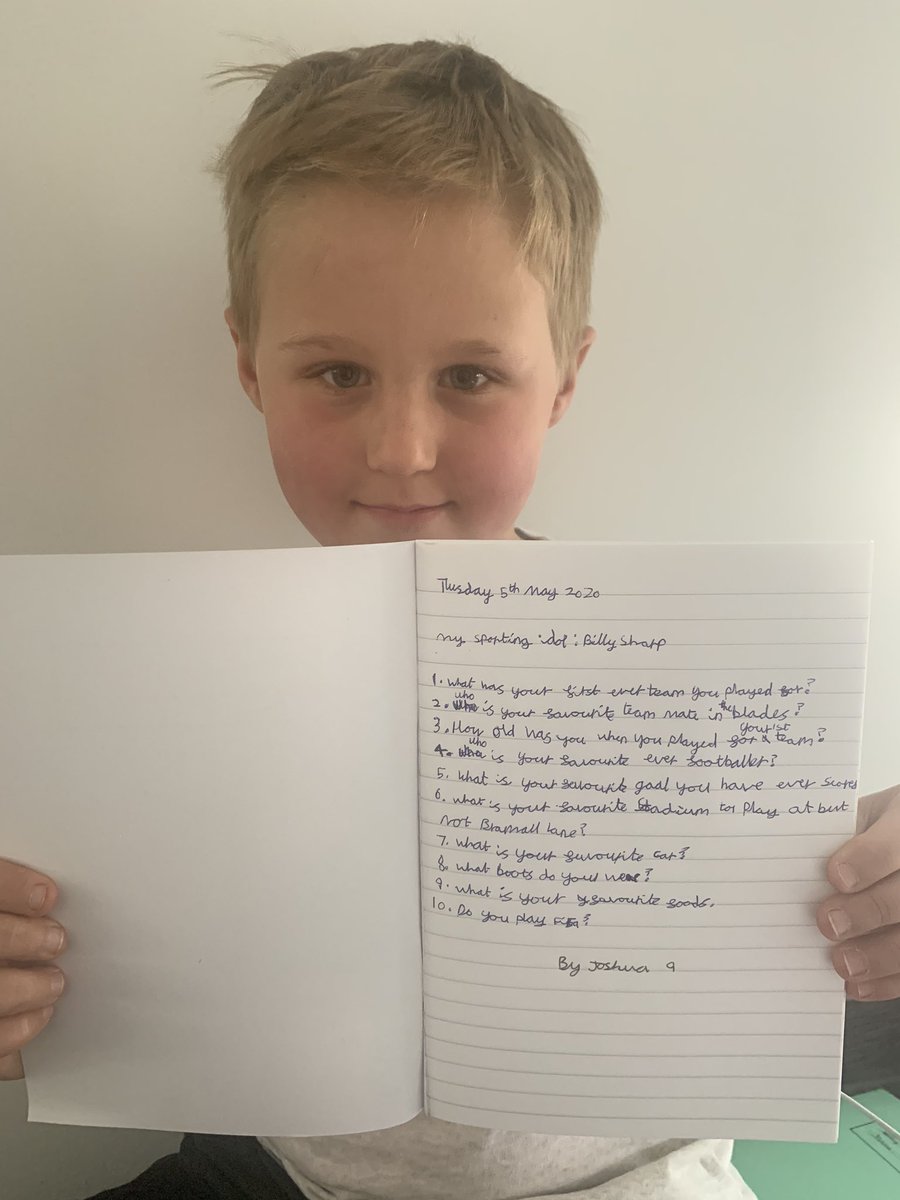 Tuesday 5th May 2020
my sporting idol: Billy Sharp
1. What was your first ever team you played for?
2. who is your favourite team mate in the blades?
3. How old was you when you played for your 1st team?
4. who is your favourite ever footballer?
5. what is your favourite goal you have ever scored
6. what is your favourite Stadium to play at but
not Bramall Lane?
7. what is your favourite car?
8. what boots do you wear?
9. what is your favourite foods.
10. Do you play fifa?
By Joshua 9